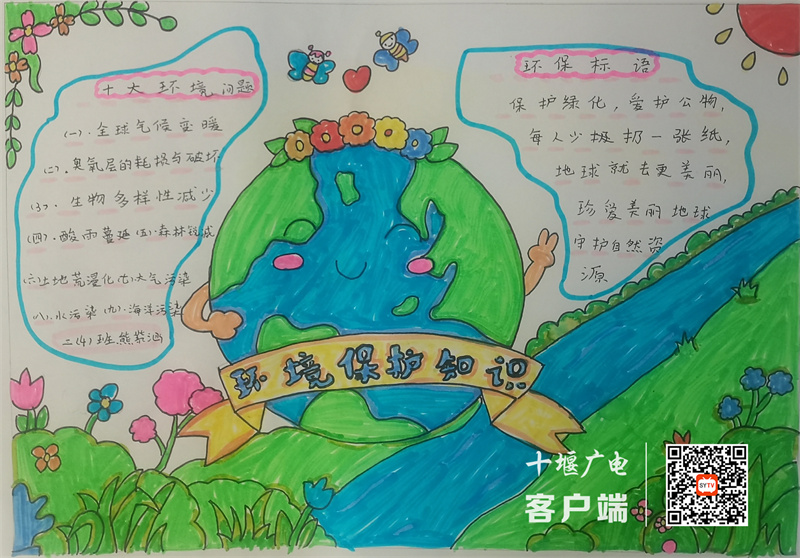 十大环境问题
(一).全球气候变暖
(二).臭氧层的耗损与破坏
(3).生物多样性减少
(四).酸雨蔓延(五).森林锐减
(六)土地荒漠化(七)大气污染
(八).水污染(九).海洋污染
二(4)班.熊紫涵
环保标语
保护绿化，爱护公物，
每人少报扔一张纸，
地球就去更美丽，
珍爱美丽地球
守护自然资
源
环境保护知识
十堰广电
客户端
SYTV